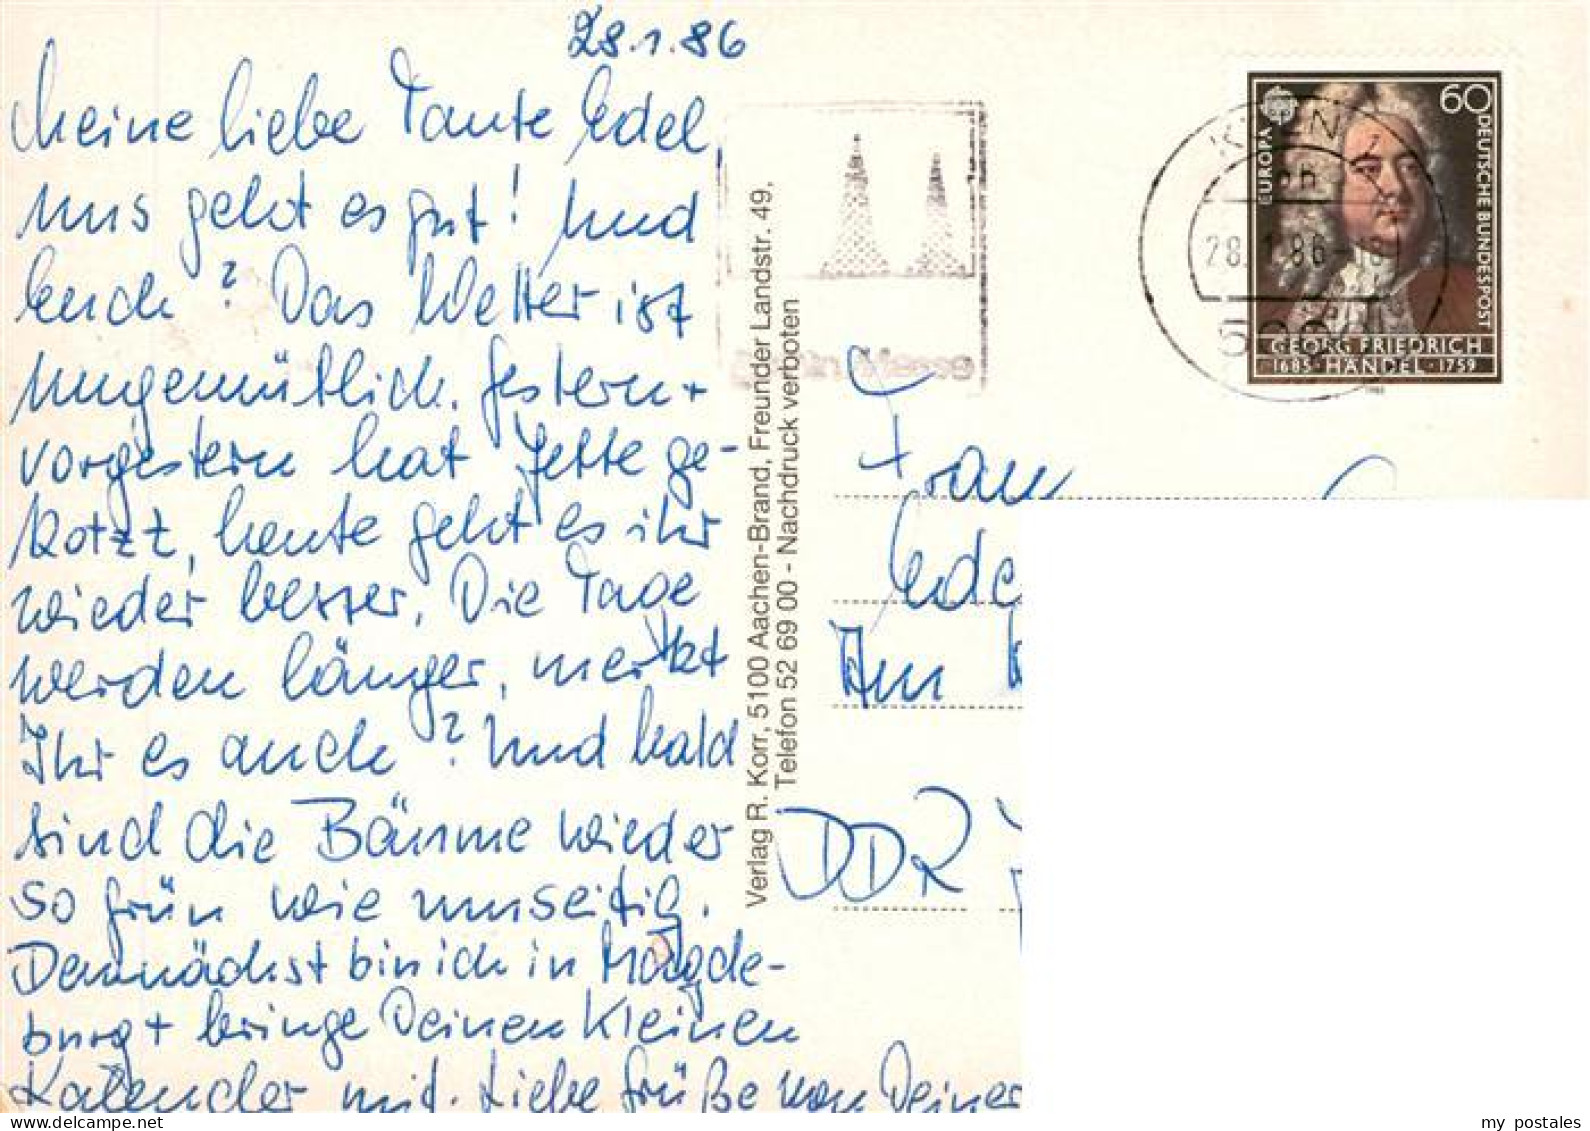 28.1.86
Meine liebe Tante Edel,
uns geht es gut! Und
Euch? Das Wetter ist
ungemütlich. Gestern +
vorgestern hat Jette ge-
kotzt, heute geht es ihr
wieder besser. Die Tage
werden länger, merkt
Ihr es auch? Und bald
sind die Bäume wieder
so grün wie umseitig.
Demnächst bin ich in Magde-
burg + bringe Deinen kleinen
Kalender mit. Liebe Grüße von Deiner
Verlag R. Korr, 5100 Aachen-Brand, Freunder Landstr. 49,
Telefon 52 69 00 - Nachdruck verboten
EUROPA
60
DEUTSCHE BUNDESPOST
GEORG FRIEDRICH
1685 · HÄNDEL · 1759
28.1.86-18
Frau
Ede
Am
DDR
my postales